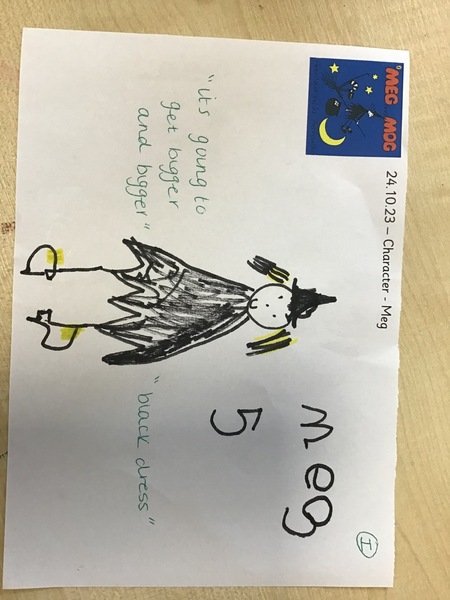 MEG MOG
24.10.23 – Character - Meg
I
meg
5
"its going to
get bigger
and bigger"
"black dress"